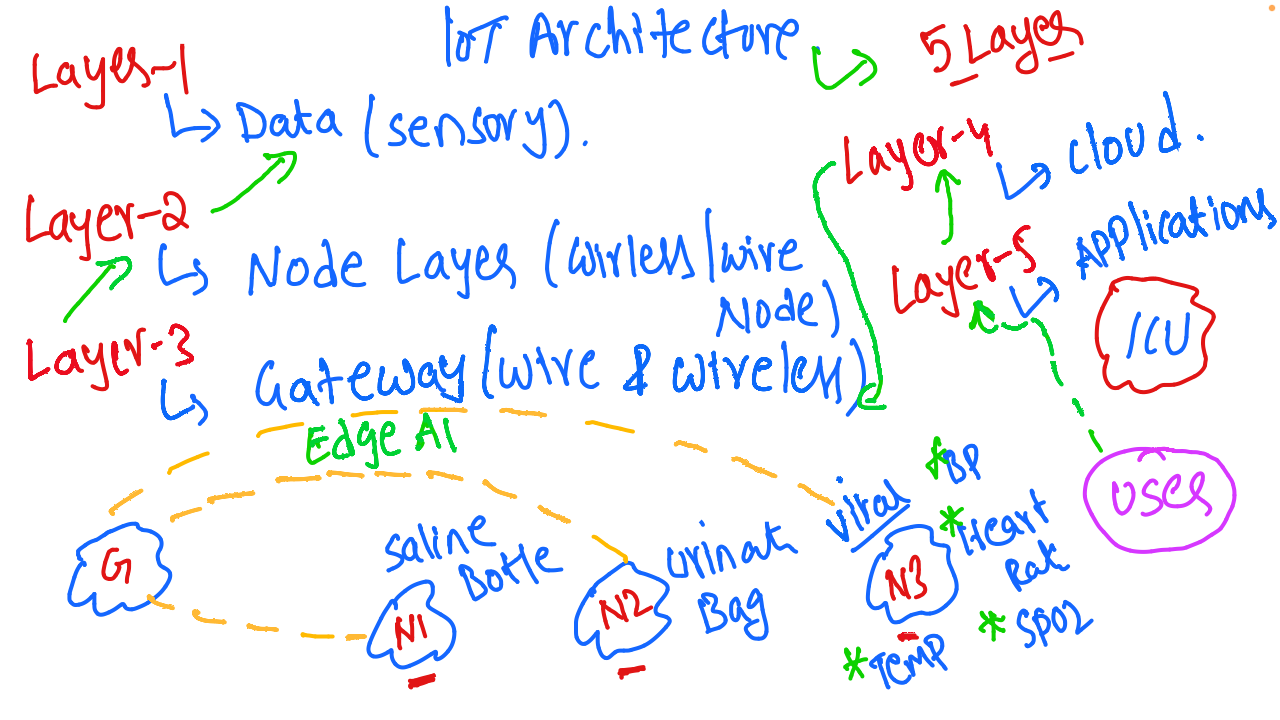 IoT Architecture
5 Layer
Layer-1
Data (sensory).
Layer-2
Node Layer (wirless/wire
Node)
Layer-3
Gateway (wire & wireless)
Edge AI
Layer-4
cloud.
Layer-5
Applications
ICU
user
G
Saline
Botle
N1
N2
urinak
Bag
viral
N3
*BP
*Heart
Rate
*SPO2
*Temp